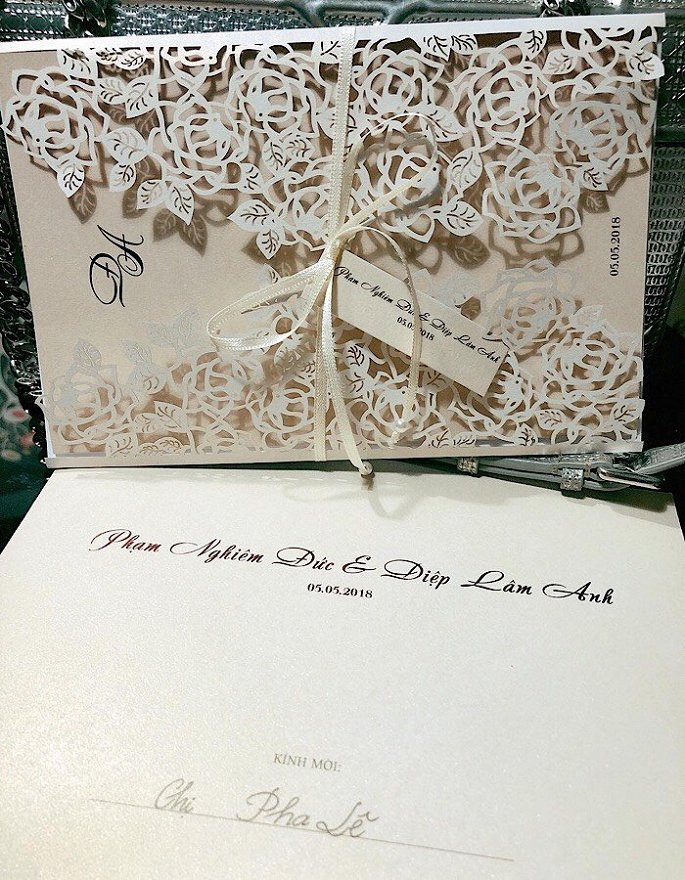 ĐA
05.05.2018
Phạm Nghiêm Đức & Diệp Lâm Anh
05.05.2018
Phạm Nghiêm Đức & Diệp Lâm Anh
05.05.2018
KÍNH MỜI:
Chị Pha Lê